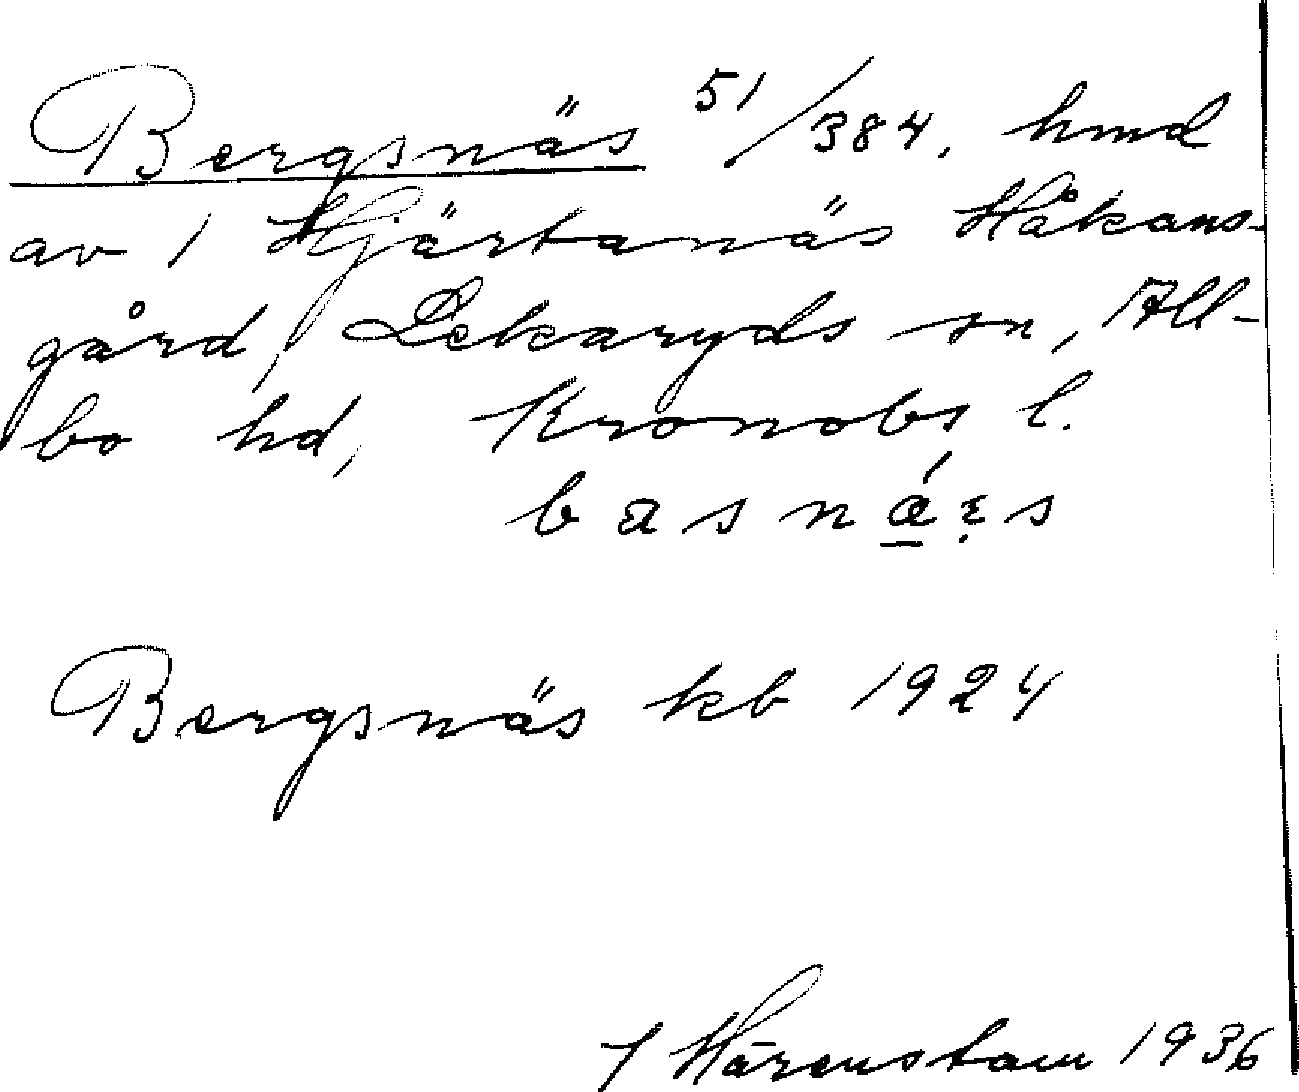 Bergsnäs 51/384, hmd
av 1 Hjärtanäs Håkans-
gård, Lekaryds sn, All-
bo hd, Kronobs l.
basnáɛ̣s
Bergsnäs kb 1924
Härenstam 1936